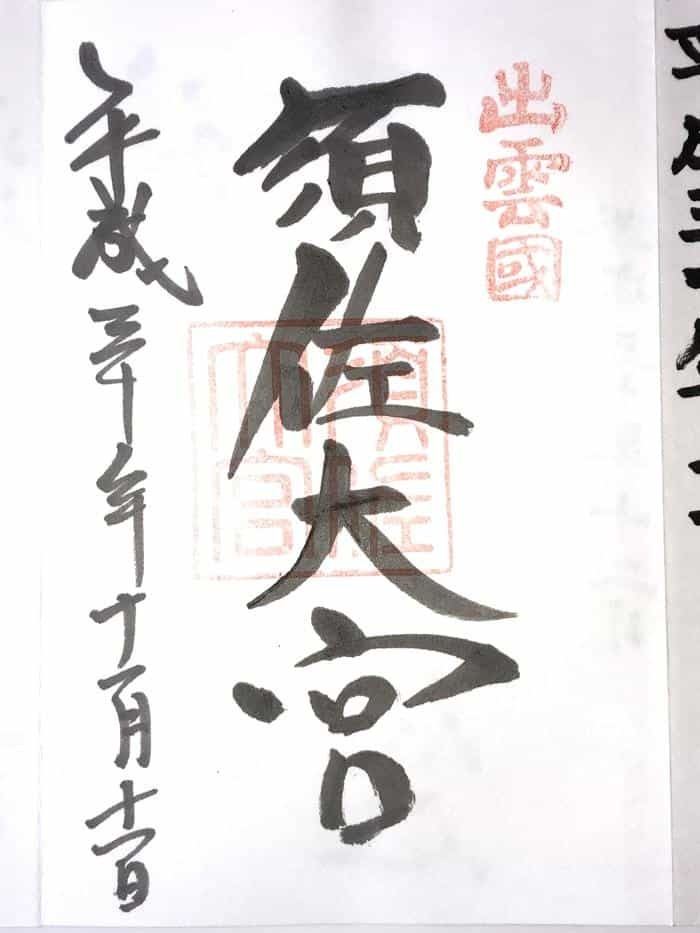 出雲國
須佐大宮
須佐
大宮
平成三十年十一月十一日